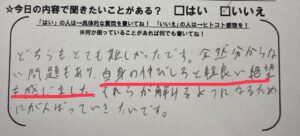 ☆今日の内容で聞きたいことがある？ □はい □いいえ
「はい」の人は→具体的な質問を書いてね！ 「いいえ」の人はヒトコト感想を！
※何か困っていることがあれば何でも書いてね！
どちらもとても難しかったです。全然分からな
い問題もあり、自身の伸びしろと軽良い絶望
を感じました。それらが解けるようになるため
にがんばっていきたいです。